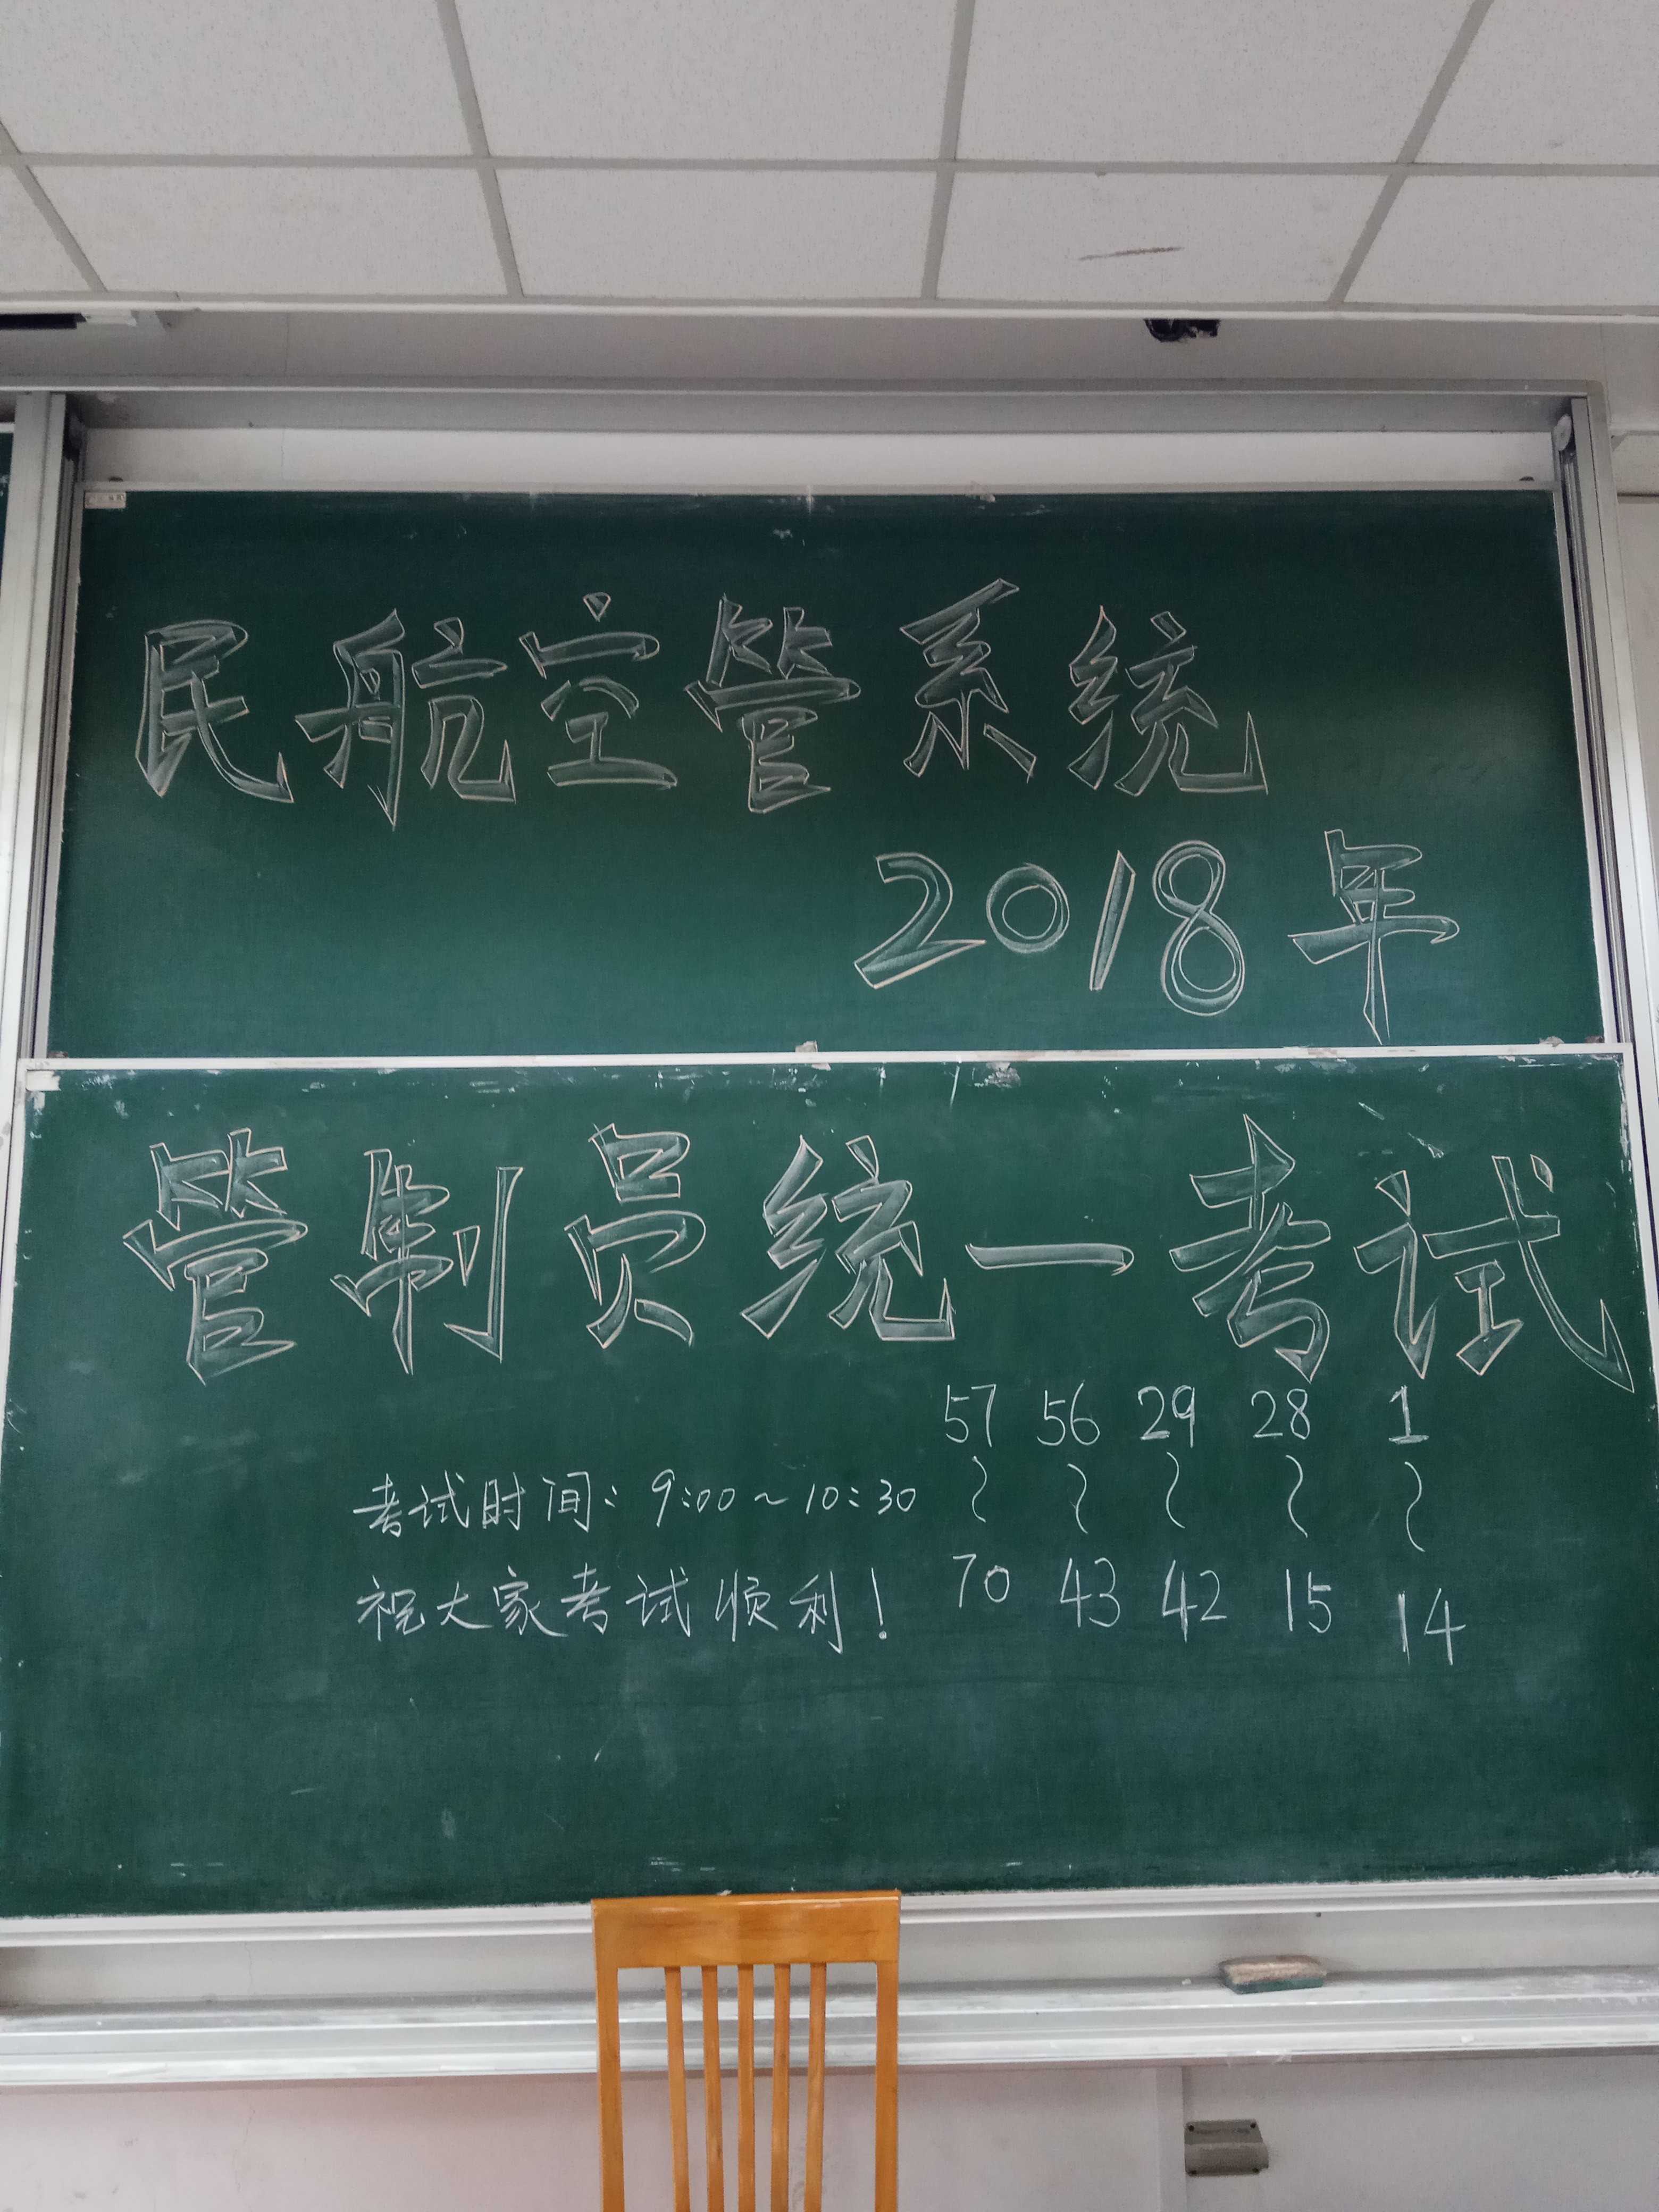 民航空管系统
2018年
管制员统一考试
57 56 29 28 1
～ ～ ～ ～ ～
70 43 42 15 14
考试时间：9:00～10:30
祝大家考试顺利！